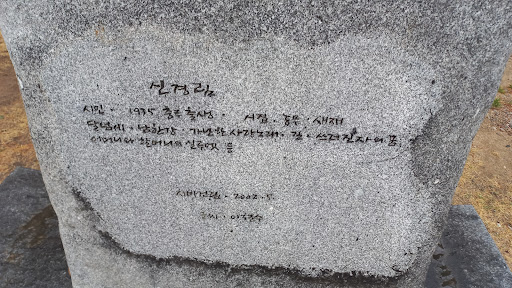 신경림
시인 · 1935 충주출생 · 시집 · 농무 · 새재
달넘세 · 남한강 · 가난한 사랑노래 · 길 · 쓰러진 자의 꿈,
어머니와 할머니의 실루엣 등
시비건립 · 2002 ·
글씨 ·